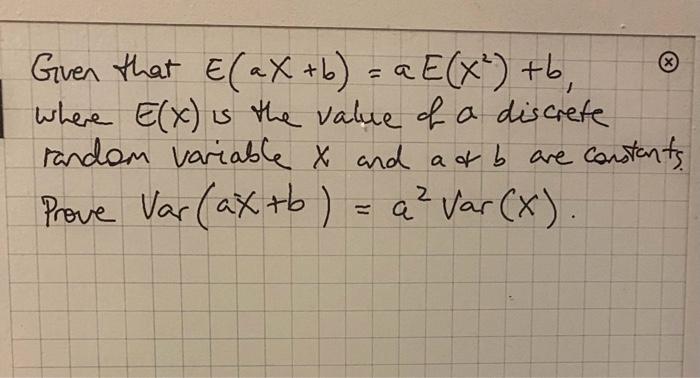 Given that E(aX+b) = aE(X²) + b, ⊗
where E(X) is the value of a discrete
random variable X and a & b are constants.
Prove Var(aX+b) = a² Var(X).